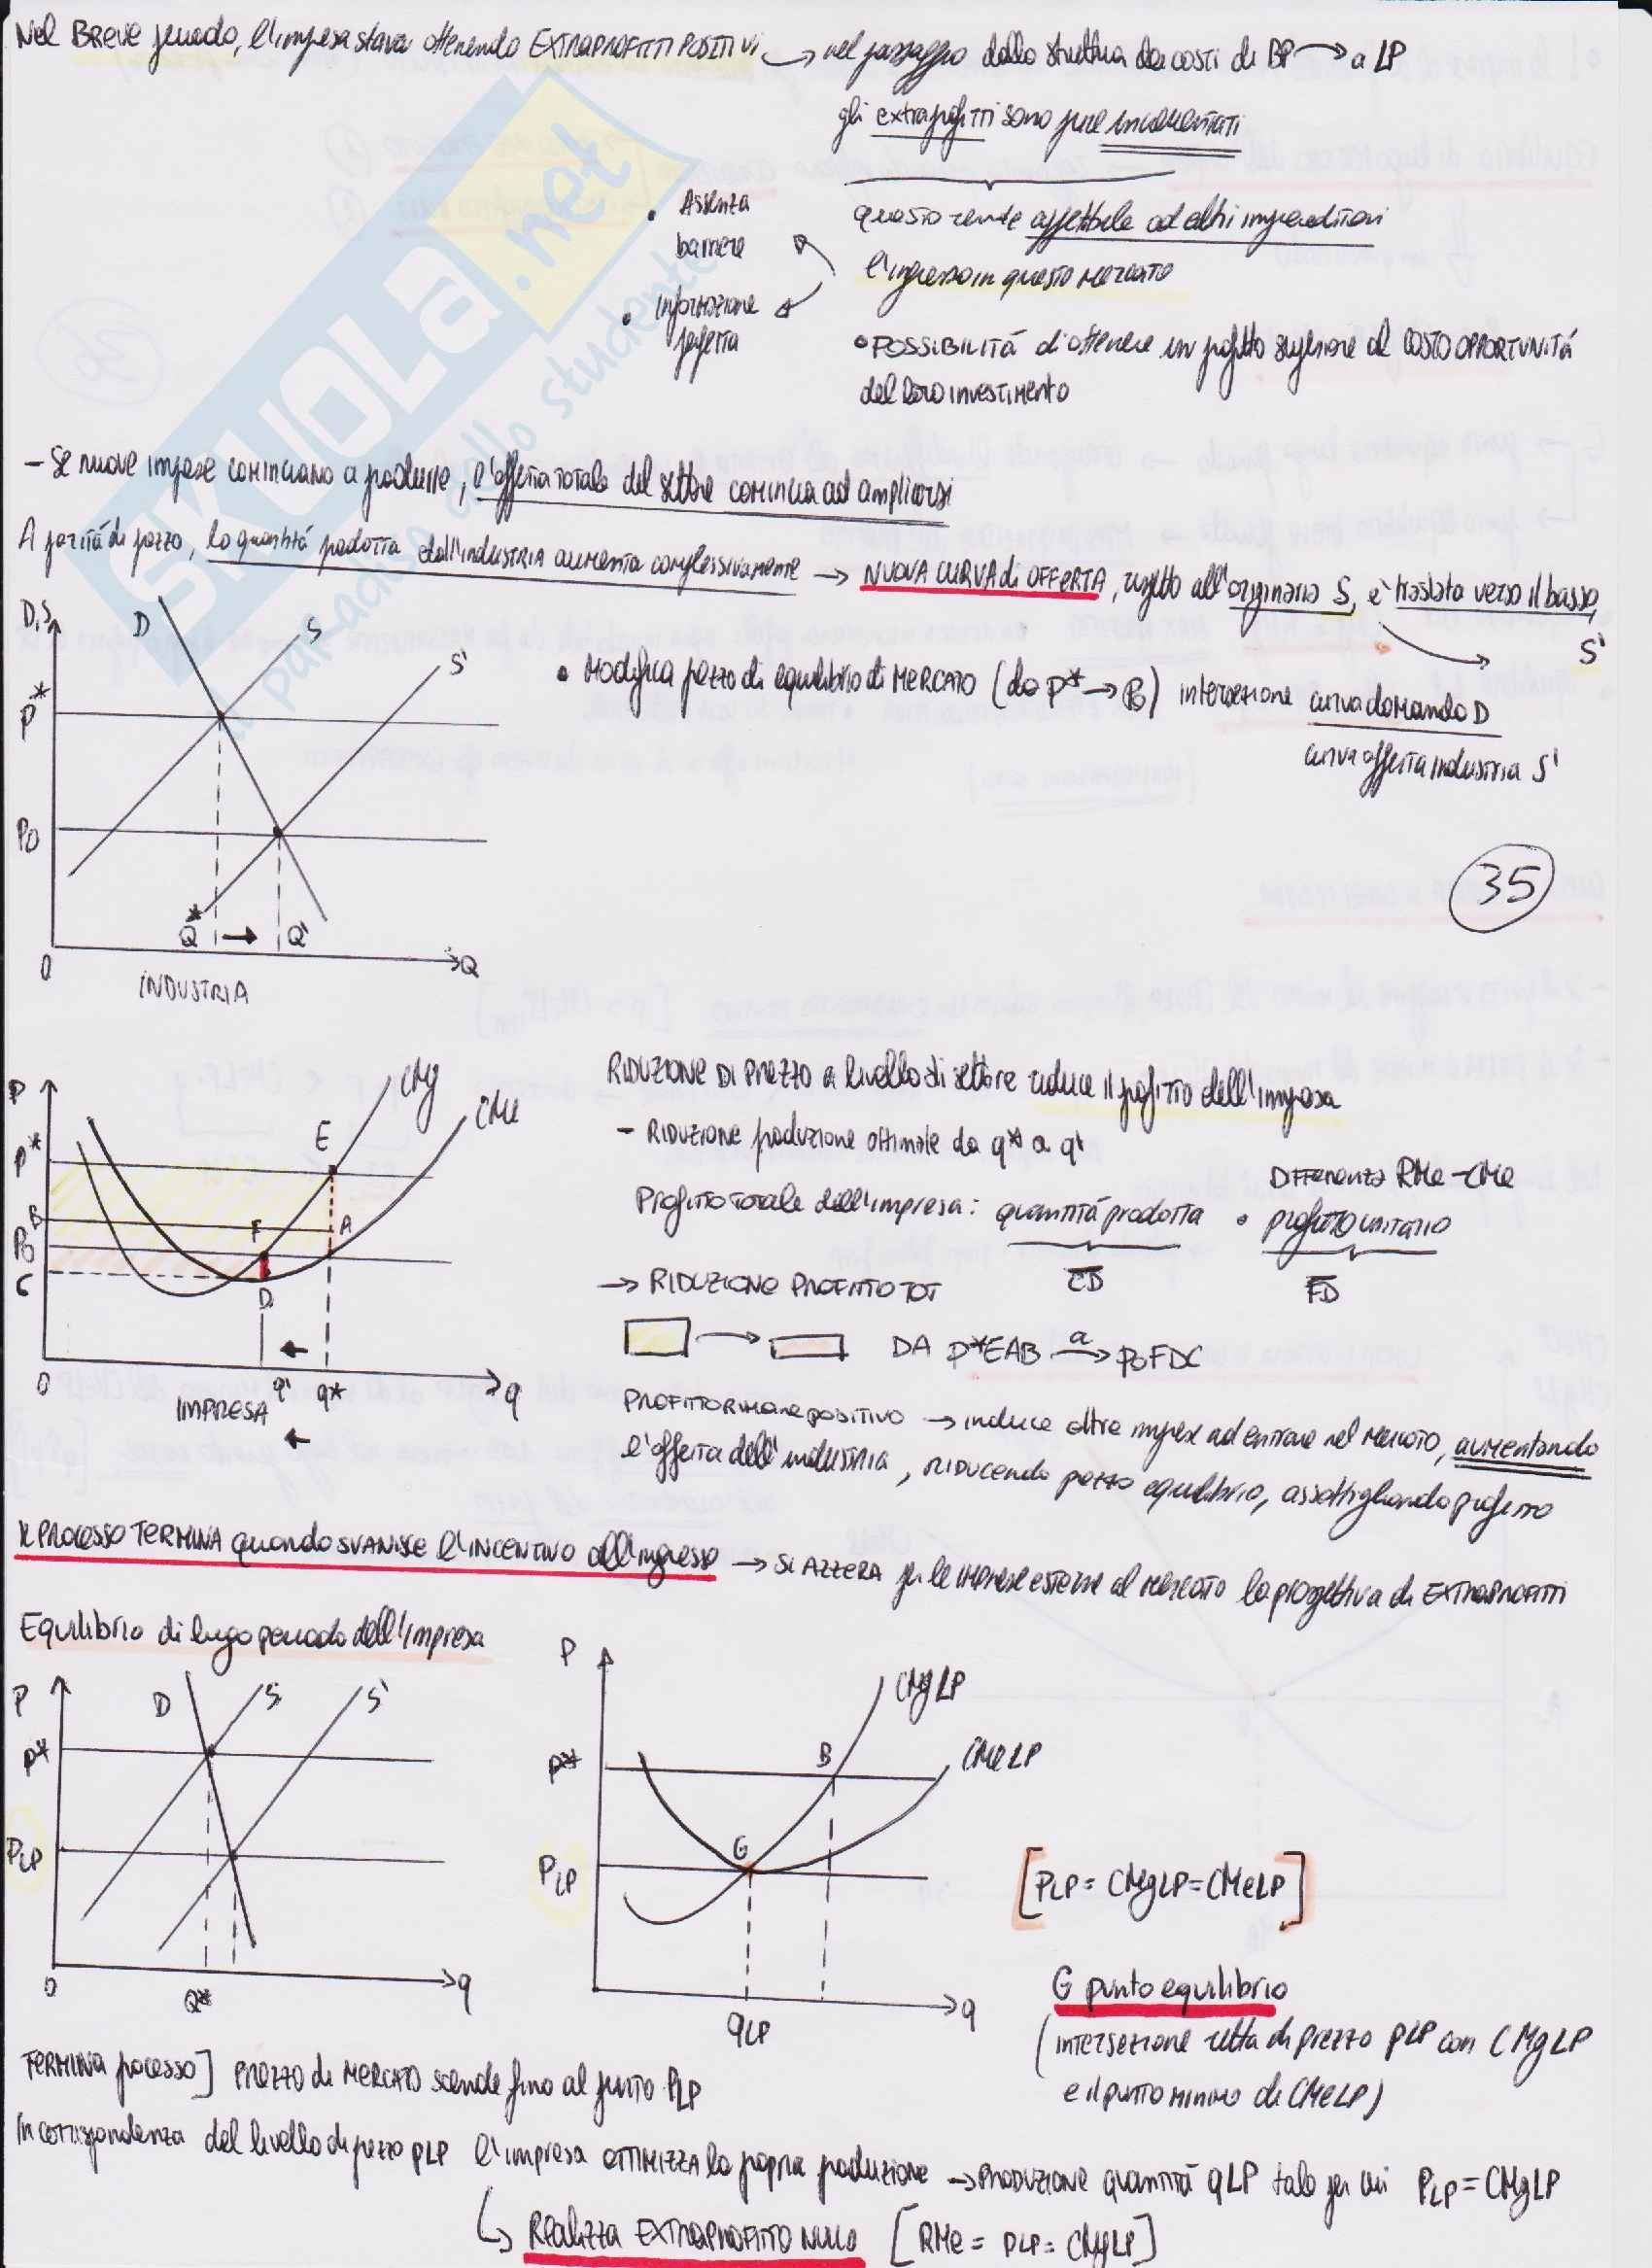 Nel BREVE periodo, l'impresa stava ottenendo EXTRAPROFITTI POSITIVI → nel passaggio dalla struttura dei costi di BP → a LP
gli extraprofitti sono pure incrementati
questo rende appetibile ad altri imprenditori
l'ingresso in questo mercato
• Assenza
barriere
• Informazione
perfetta
• POSSIBILITÀ di ottenere un profitto superiore al COSTO OPPORTUNITÁ
del loro investimento
SKUOLA.net
il paradiso dello studente
- Se nuove imprese cominciano a produrre, l'offerta totale del settore comincia ad ampliarsi
A parità di prezzo, la quantità prodotta dall'industria aumenta complessivamente → NUOVA CURVA di OFFERTA, rispetto all'originaria S, è traslata verso il basso,
S'
• Modifica prezzo di equilibrio di MERCATO (da P* → P0) intersezione curva domanda D
curva offerta industria S'
D,S
D
S
S'
P*
P0
Q* → Q'
0
Q
INDUSTRIA
35
P
CMg
CMe
P*
E
B
F
A
P0
C
D
0
q'
q*
q
IMPRESA
RIDUZIONE DI PREZZO a livello di settore riduce il profitto dell'impresa
- RIDUZIONE produzione ottimale da q* a q'
Differenza RMe-CMe
Profitto totale dell'impresa: quantità prodotta • profitto unitario
CD
FD
→ RIDUZIONE PROFITTO TOT
→ DA P*EAB a → P0FDC
PROFITTO RIMANE positivo → induce altre imprese ad entrare nel mercato, aumentando
l'offerta dell'industria, RIDUCENDO prezzo equilibrio, assottigliando profitto
IL PROCESSO TERMINA quando SVANISCE l'INCENTIVO all'ingresso → SI AZZERA per le IMPRESE esterne al MERCATO la prospettiva di EXTRAPROFITTI
Equilibrio di lungo periodo dell'impresa
P
D
S
S'
P*
PLP
0
Q*
q
P
CMgLP
P*
B
CMeLP
G
PLP
qLP
q
[PLP = CMgLP = CMeLP]
G punto equilibrio
(intersezione retta di prezzo PLP con CMgLP
e il punto minimo di CMeLP)
TERMINA processo] PREZZO di MERCATO scende fino al punto PLP
In corrispondenza del livello di prezzo PLP l'impresa OTTIMIZZA la propria produzione → PRODUZIONE quantità qLP tale per cui PLP = CMgLP
↳ Realizza EXTRAPROFITTO NULLO [RMe = PLP = CMgLP]